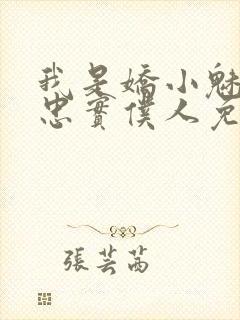 我是嬌小魅
忠實僕人兔
張芸茜